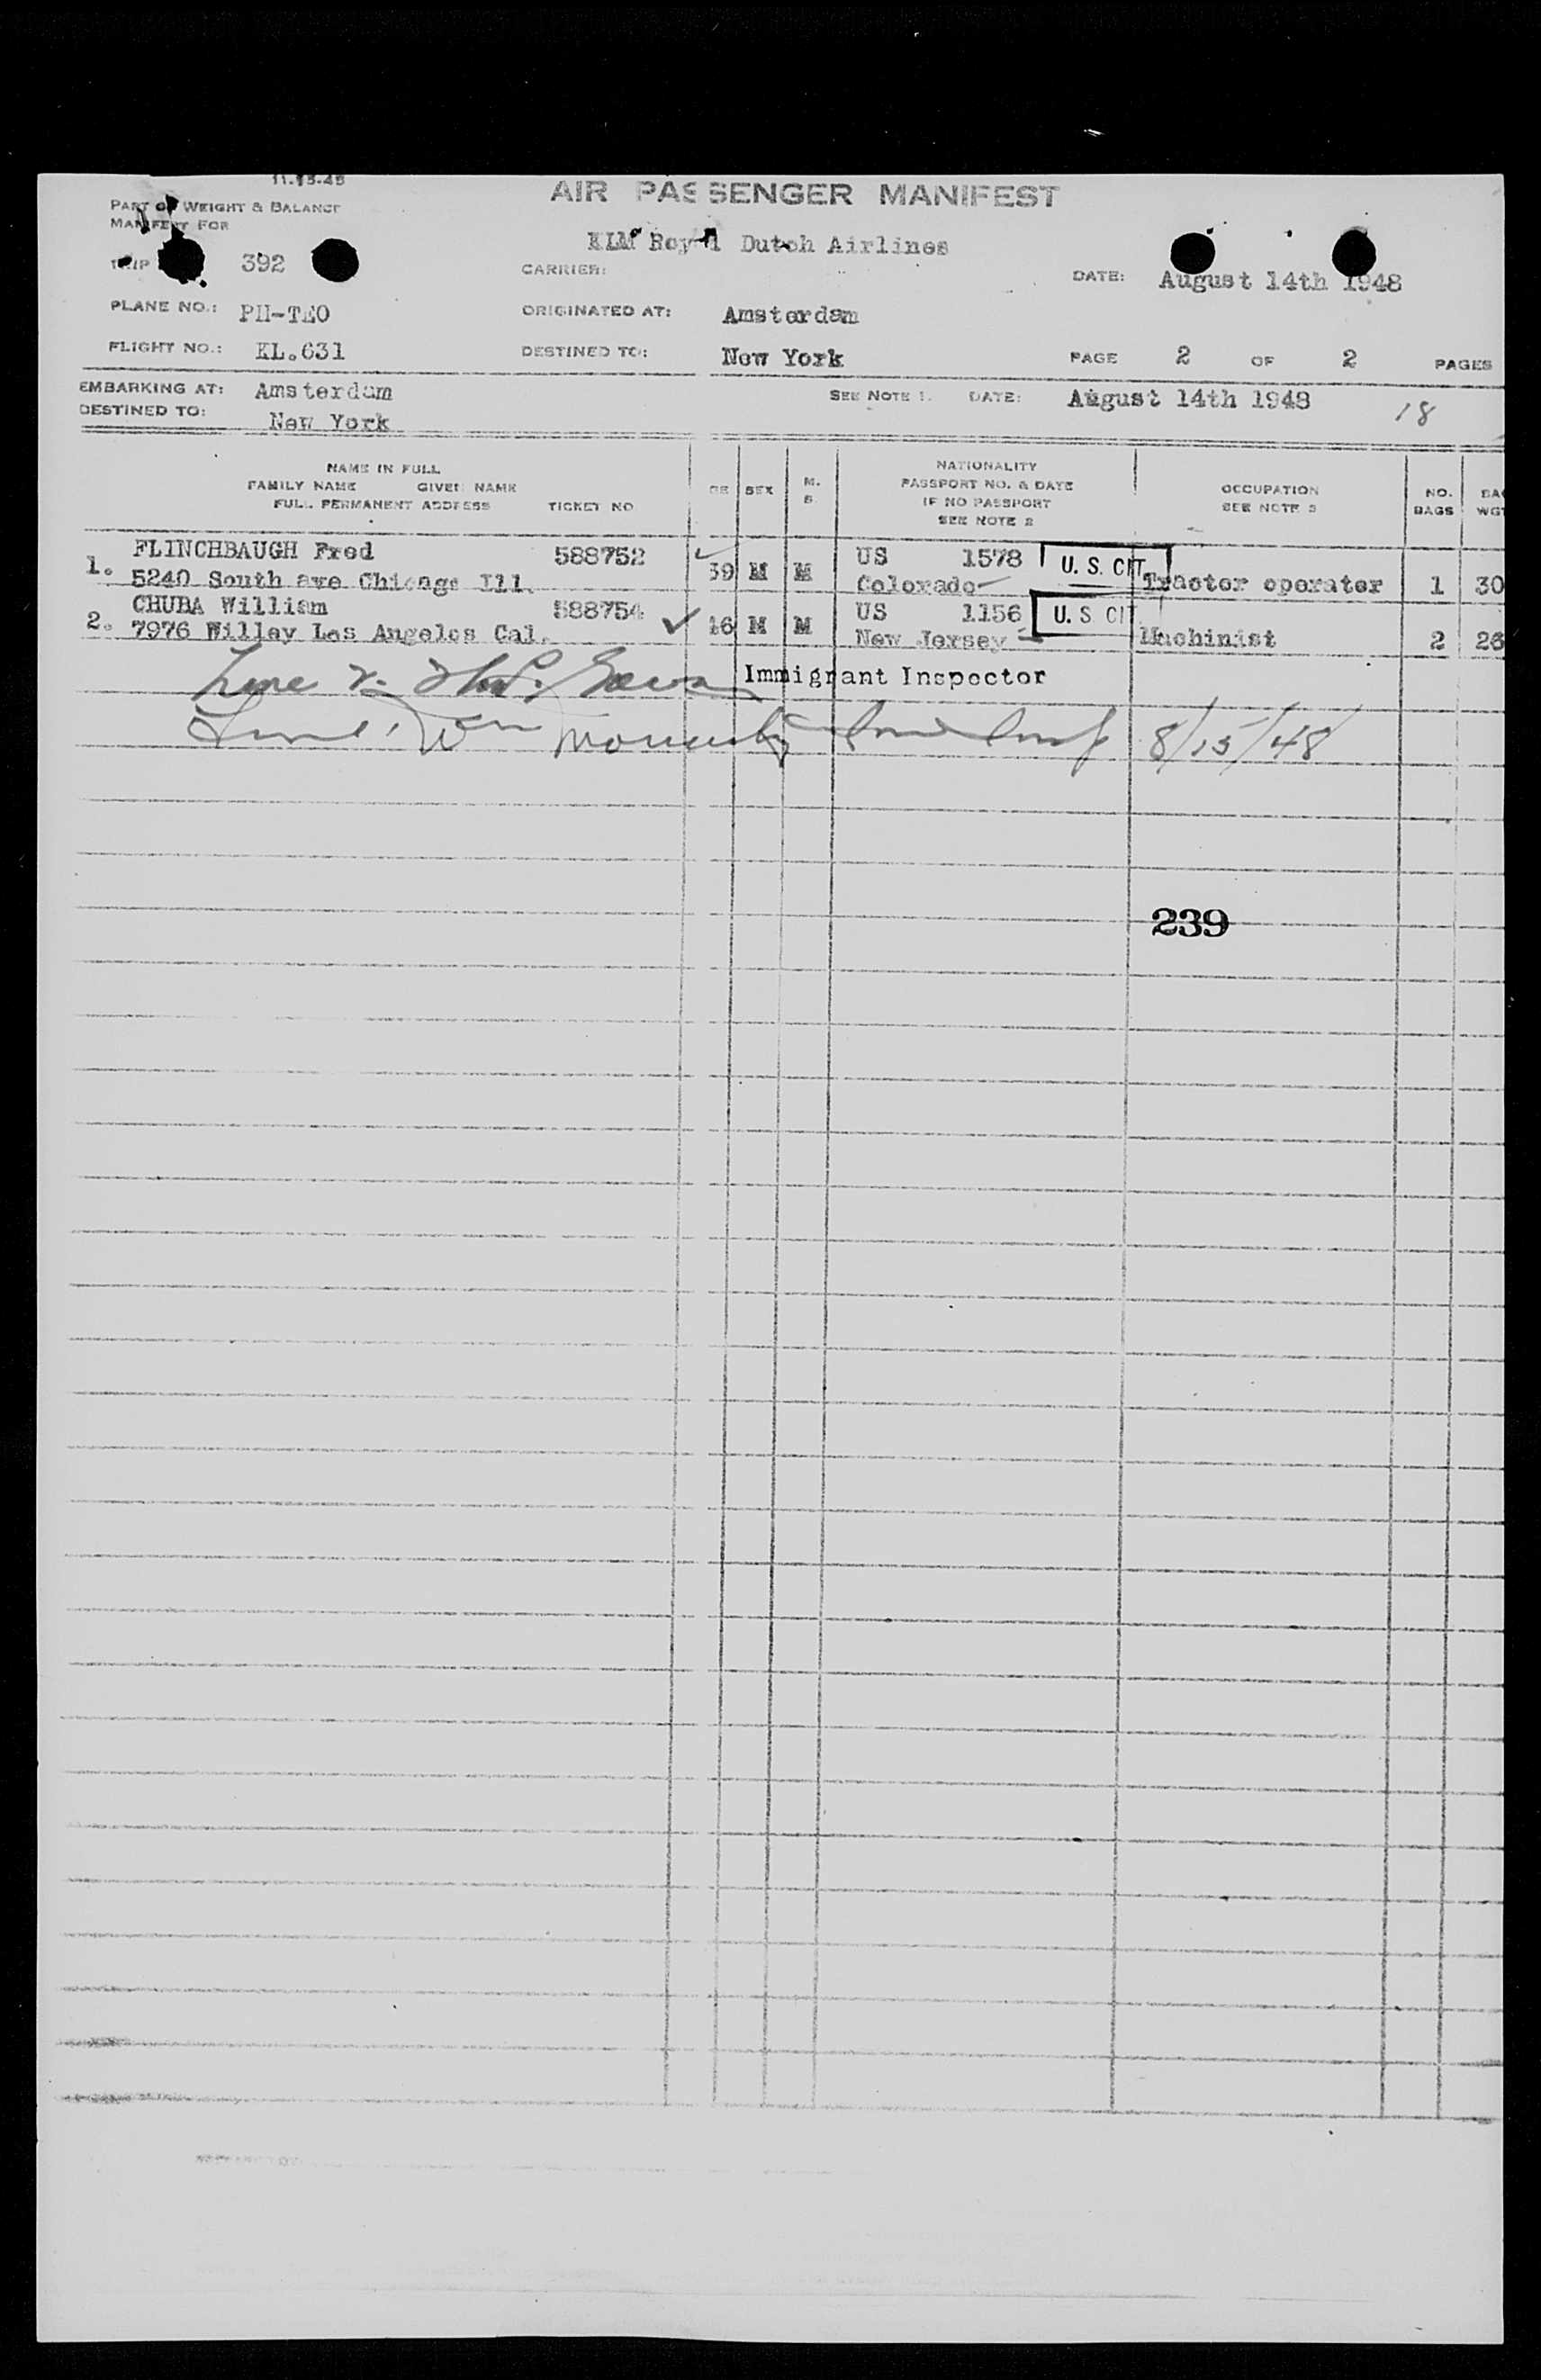 11-15-45
AIR PASSENGER MANIFEST
PART OF WEIGHT & BALANCE
MANIFEST FOR
KLM Royal Dutch Airlines
TRIP 392
CARRIER:
DATE: August 14th 1948
PLANE NO.: PH-TEO
ORIGINATED AT: Amsterdam
FLIGHT NO.: KL.631
DESTINED TO: New York
PAGE 2 OF 2 PAGES
EMBARKING AT: Amsterdam
SEE NOTE 1. DATE: August 14th 1948
18
DESTINED TO: New York
NAME IN FULL
FAMILY NAME GIVEN NAME
FULL PERMANENT ADDRESS TICKET NO
GE SEX M. S
NATIONALITY
PASSPORT NO. & DATE
IF NO PASSPORT
SEE NOTE 2
OCCUPATION
SEE NOTE 3
NO. BAGS
BAG WGT
1. FLINCHBAUGH Fred 588752 US 1578 U. S. CIT
5240 South ave Chicago Ill. 39 M M Colorado Tractor operater 1 30
2. CHUBA William 588754 US 1156 U. S CIT
7976 Willey Los Angeles Cal. 46 M M New Jersey Machinist 2 26
Immigrant Inspector
8/15/48
239